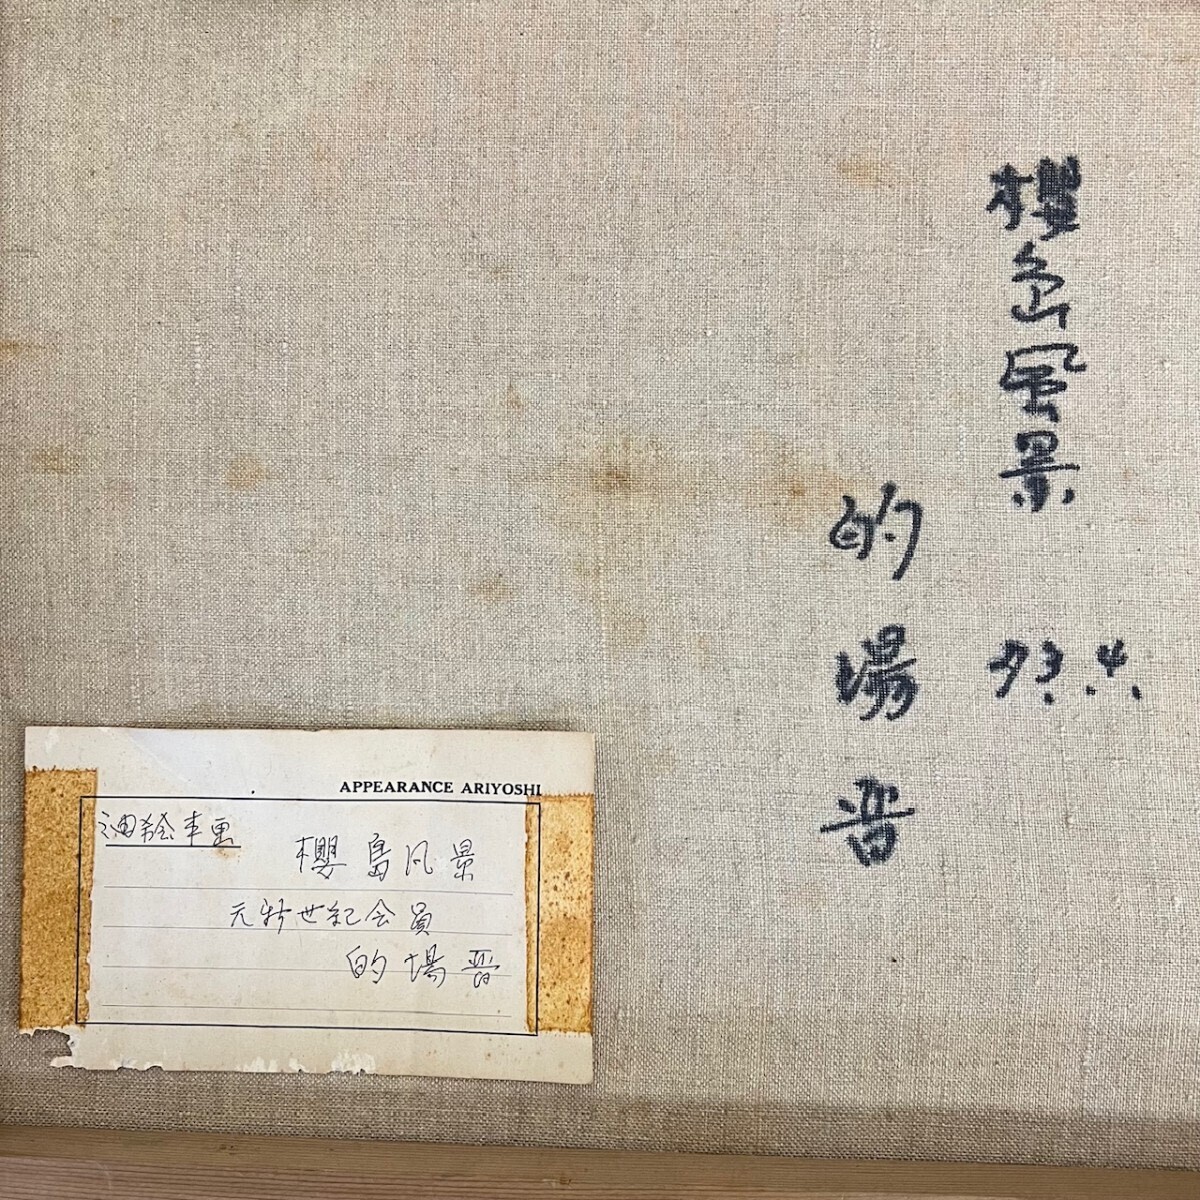 櫻島風景
73.4.
的場晋
APPEARANCE ARIYOSHI
油絵車画
櫻島風景
元新世紀会員
的場晋